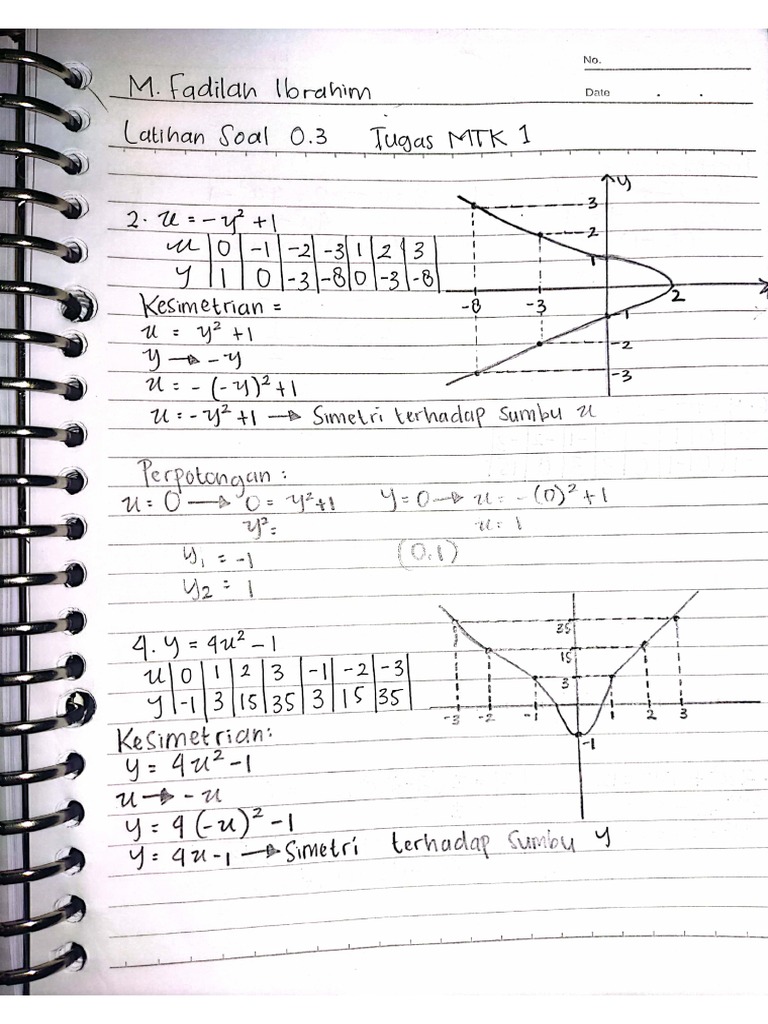 No.
Date
M. Fadilah Ibrahim
Latihan Soal 0.3 Tugas MTK 1
2. x = -y² + 1
x 0 -1 -2 -3 1 2 3
y 1 0 -3 -8 0 -3 -8
Kesimetrian =
x = y² + 1
y → -y
x = -(-y)² + 1
x = -y² + 1 → Simetri terhadap sumbu x
y
3
2
1
-8 -3 2
-1
-2
-3
Perpotongan :
x = 0 → 0 = y² + 1 y = 0 → x = -(0)² + 1
y² = x = 1
y₁ = -1 (0.1)
y₂ = 1
4. y = 4x² - 1
x 0 1 2 3 -1 -2 -3
y -1 3 15 35 3 15 35
Kesimetrian:
y = 4x² - 1
x → -x
y = 4(-x)² - 1
y = 4x - 1 → Simetri terhadap sumbu y
35
15
3
-3 -2 -1 1 2 3
-1